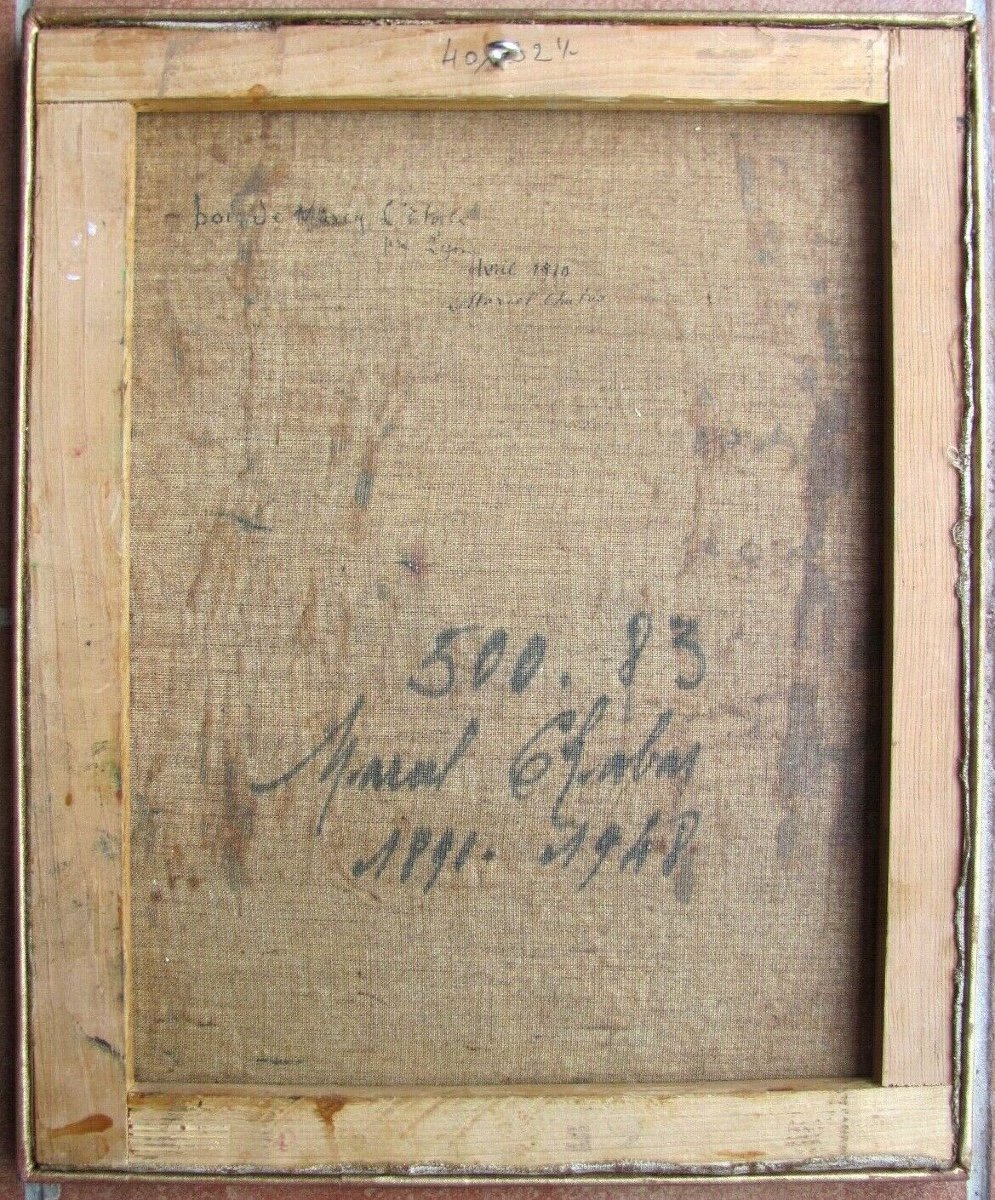 40x32½
bois de Marcy L'étoile
près Lyon
Avril 1910
Marcel Chabas
500. 83
Marcel Chabas
1891. 1948